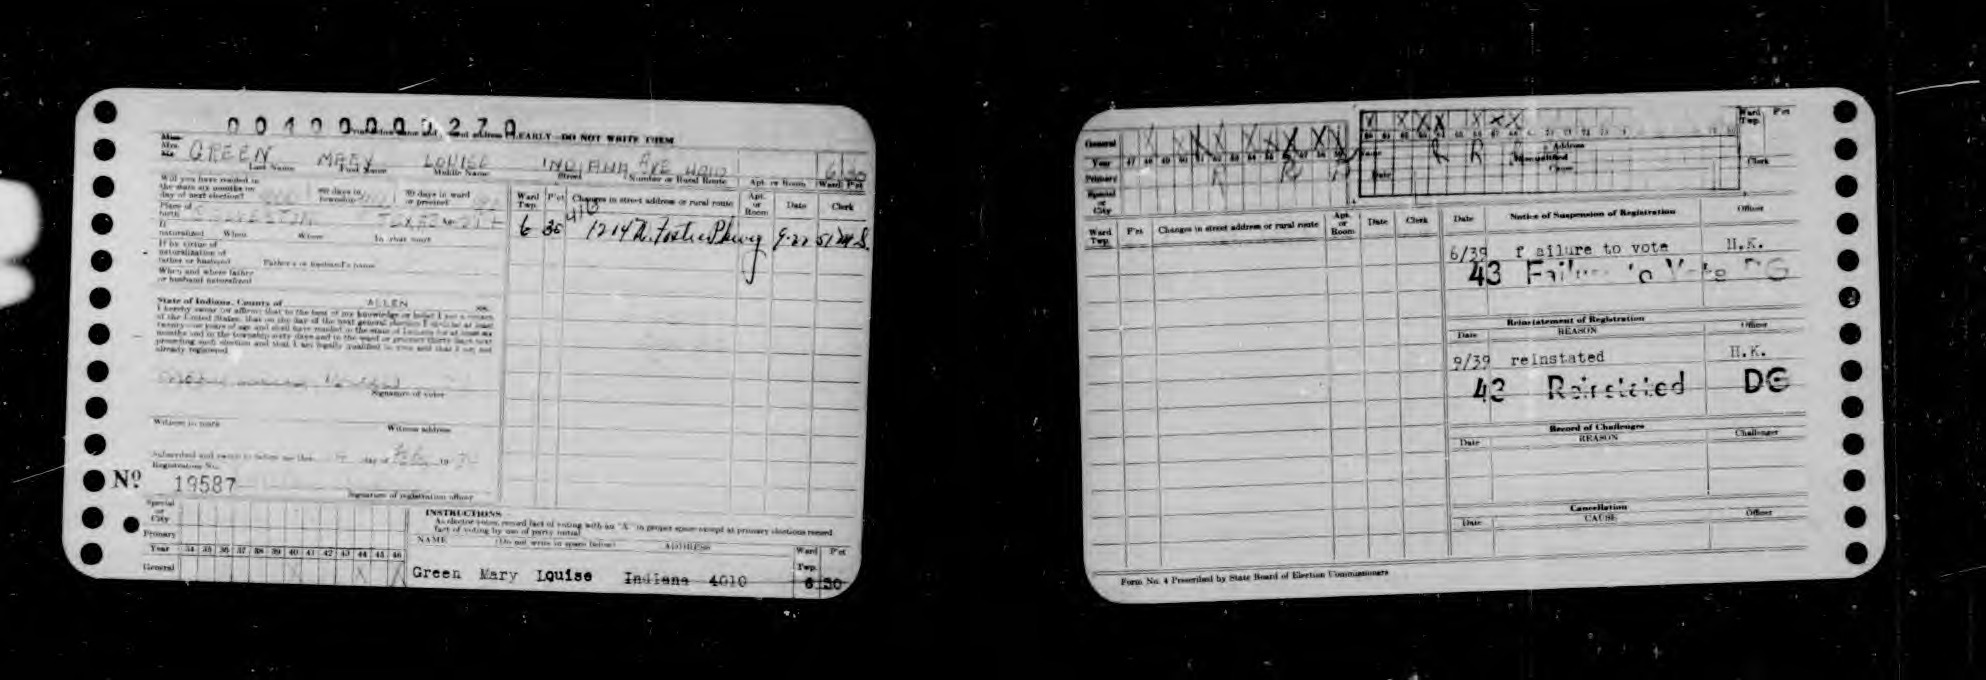 001900009270
EARLY—DO NOT WRITE THEM
Miss
Mrs.
Mr.
GREEN MARY LOUISE INDIANA AVE 4010 6 30
Last Name First Name Middle Name Street Number or Rural Route Apt. or Room Ward P'ct
Will you have resided in
the state six months on
day of next election?
60 days in
township
30 days in ward
or precinct
Place of
birth
TEXAS
If
naturalized When Where In what court
If by virtue of
naturalization of
father or husband Father's or husband's name
When and where father
or husband naturalized
Ward
Twp. P'ct Changes in street address or rural route Apt.
or
Room Date Clerk
6 35 1214 W. Foster Pkwy 9-22-51 M.S.
State of Indiana, County of ALLEN SS.
I hereby swear (or affirm) that to the best of my knowledge or belief I am a citizen
of the United States, that on the day of the next general election I shall be at least
twenty-one years of age and shall have resided in the state of Indiana for at least six
months and in the township sixty days and in the ward or precinct thirty days next
preceding such election and that I am legally qualified to vote and that I am not
already registered
Signature of voter
Witness to mark Witness address
Subscribed and sworn to before me this day of 19
Registration No.
No. 19587
Signature of registration officer
Special
or
City
Primary
Year 34 35 36 37 38 39 40 41 42 43 44 45 46
General X X X
INSTRUCTIONS
As elector votes, record fact of voting with an "X" in proper space except at primary elections record
fact of voting by use of party initial
NAME (Do not write in space below) ADDRESS Ward
Twp. P'ct
Green Mary Louise Indiana 4010 6 30
General
Year 47 48 49 50 51 52 53 54 55 56 57 58 59
Primary R R R
Special
or
City
Address
Disqualified
Cause
Name
Date
R R R
Ward
Twp. P'ct
Clerk
Ward
Twp. P'ct Changes in street address or rural route Apt.
or
Room Date Clerk
Date Notice of Suspension of Registration Officer
6/39 failure to vote H.K.
43 Failure to Vote DG
Reinstatement of Registration
Date REASON Officer
9/39 reinstated H.K.
43 Reinstated DG
Record of Challenges
Date REASON Challenger
Cancellation
Date CAUSE Officer
Form No. 4 Prescribed by State Board of Election Commissioners